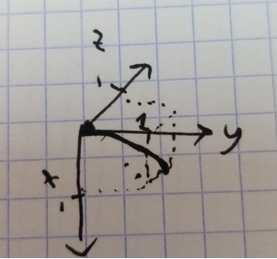 z
1
1
y
x
1